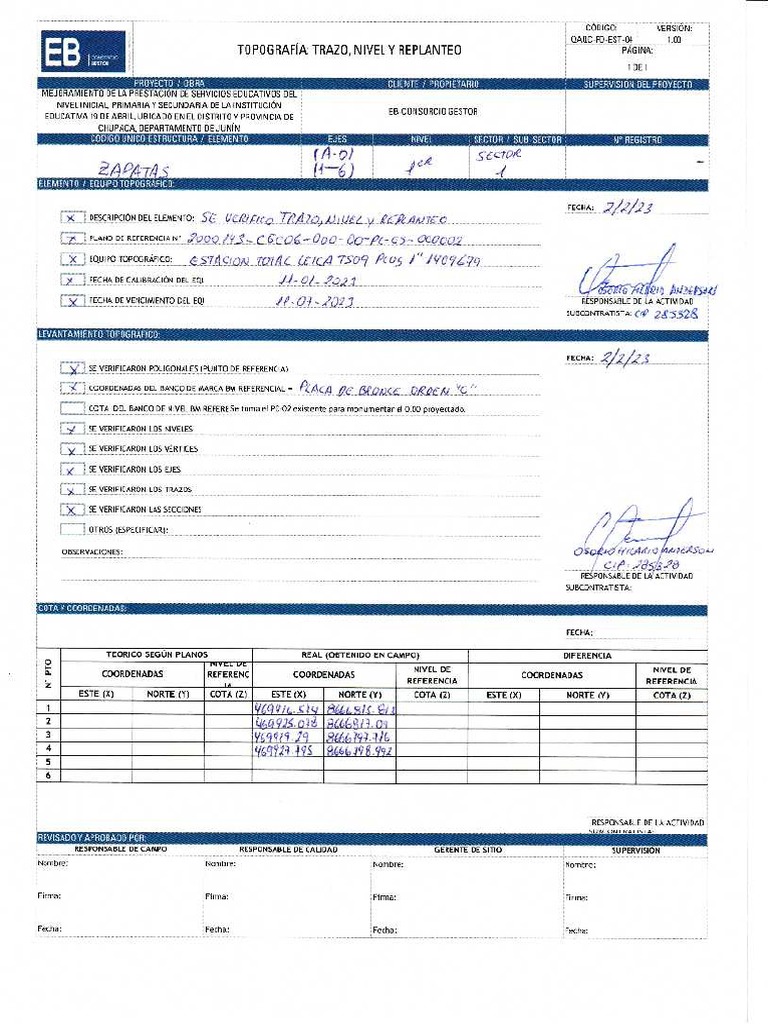 EB CONSORCIO GESTOR
TOPOGRAFÍA: TRAZO, NIVEL Y REPLANTEO
CÓDIGO: VERSIÓN:
QAQC-FO-EST-04 1.00
PÁGINA:
1 DE 1
PROYECTO / OBRA CLIENTE / PROPIETARIO SUPERVISIÓN DEL PROYECTO
MEJORAMIENTO DE LA PRESTACIÓN DE SERVICIOS EDUCATIVOS DEL
NIVEL INICIAL, PRIMARIA Y SECUNDARIA DE LA INSTITUCIÓN
EDUCATIVA 19 DE ABRIL, UBICADO EN EL DISTRITO Y PROVINCIA DE
CHUPACA, DEPARTAMENTO DE JUNÍN
EB-CONSORCIO GESTOR
CODIGO UNICO ESTRUCTURA / ELEMENTO EJES NIVEL SECTOR / SUB-SECTOR N° REGISTRO
ZAPATAS (A-D) (1-6) 1ER SECTOR 1 -
ELEMENTO / EQUIPO TOPOGRÁFICO:
FECHA: 2/2/23
X DESCRIPCIÓN DEL ELEMENTO: SE VERIFICO TRAZO, NIVEL y REPLANTEO
X PLANO DE REFERENCIA N°
X EQUIPO TOPOGRÁFICO: ESTACION TOTAL LEICA TS09 PLUS 1" 1409679
X FECHA DE CALIBRACIÓN DEL EQI 11-01-2023
X FECHA DE VENCIMIENTO DEL EQI 11-07-2023
OSORIO HILARIO ANDERSON
RESPONSABLE DE LA ACTIVIDAD
SUBCONTRATISTA: CIP 285328
LEVANTAMIENTO TOPOGRÁFICO:
FECHA: 2/2/23
X SE VERIFICARON POLIGONALES (PUNTO DE REFERENCIA)
X COORDENADAS DEL BANCO DE MARCA BM REFERENCIAL = PLACA DE BRONCE ORDEN "C"
COTA DEL BANCO DE NIVEL BM REFERE Se toma el PC-02 existente para monumentar el 0.00 proyectado.
X SE VERIFICARON LOS NIVELES
X SE VERIFICARON LOS VÉRTICES
X SE VERIFICARON LOS EJES
X SE VERIFICARON LOS TRAZOS
X SE VERIFICARON LAS SECCIONES
OTROS (ESPECIFICAR):
OBSERVACIONES:
OSORIO HILARIO ANDERSON
CIP: 285328
RESPONSABLE DE LA ACTIVIDAD
SUBCONTRATISTA:
COTA Y COORDENADAS:
FECHA:
N° PTO TEORICO SEGÚN PLANOS REAL (OBTENIDO EN CAMPO) DIFERENCIA
COORDENADAS NIVEL DE REFERENCIA COORDENADAS NIVEL DE REFERENCIA COORDENADAS NIVEL DE REFERENCIA
ESTE (X) NORTE (Y) COTA (Z) ESTE (X) NORTE (Y) COTA (Z) ESTE (X) NORTE (Y) COTA (Z)
1
2
3
4
5
6
RESPONSABLE DE LA ACTIVIDAD
SUBCONTRATISTA:
REVISADO Y APROBADO POR:
RESPONSABLE DE CAMPO RESPONSABLE DE CALIDAD GERENTE DE SITIO SUPERVISIÓN
Nombre: Nombre: Nombre: Nombre:
Firma: Firma: Firma: Firma:
Fecha: Fecha: Fecha: Fecha: